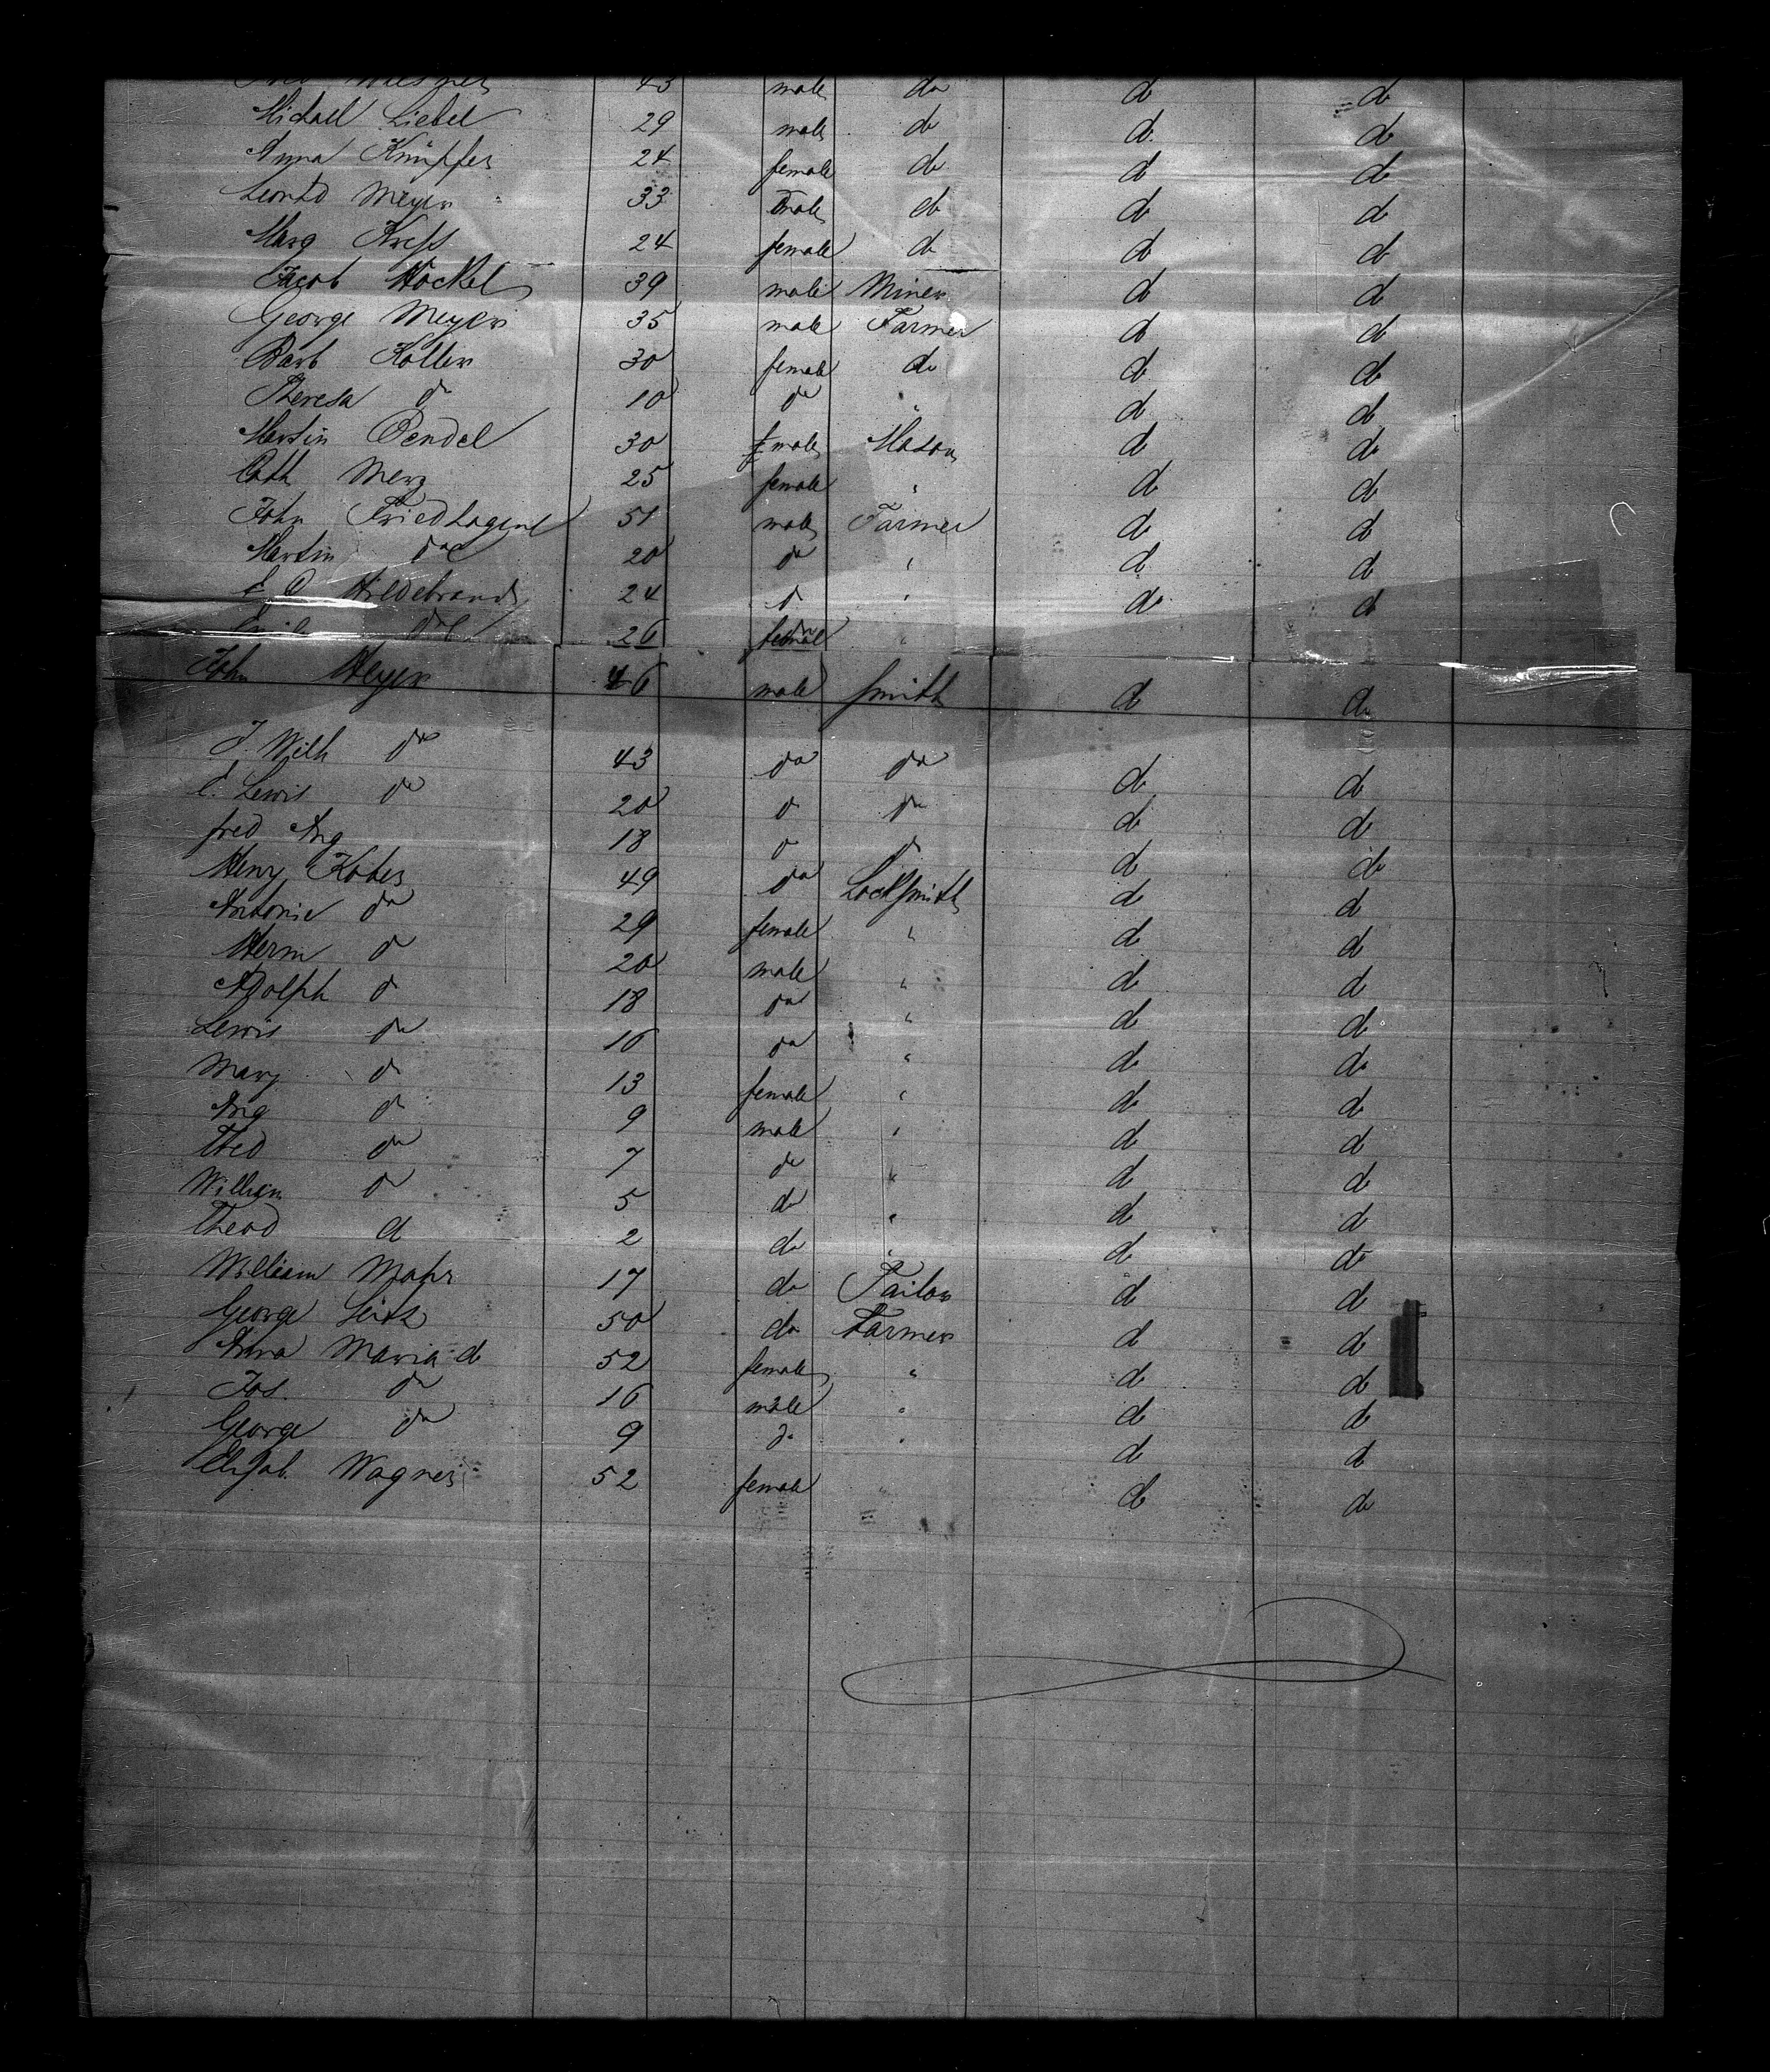 43 male do do do
Michael Liebel 29 male do do do
Anna Knüpfer 24 female do do do
Leonhd Meyer 33 male do do do
Marg Kreß 24 female do do do
Jacob Höckel 39 male Miner do do
George Meyer 35 male Farmer do do
Barb Koller 30 female do do do
Theresa do 10 do " do do
Martin Bendel 30 male Mason do do
Cath Merz 25 female " do do
John Friedhagend 51 male Farmer do do
Martin do 20 do " do do
Hildebrand 24 do " do do
do 26 female "
John Meyer 46 male Smith do do
J. Wilh do 43 do do do do
C. Lewis do 20 do do do do
fred Aug 18 do do do do
Henry Kober 49 do Locksmith do do
Antonie do 29 female " do do
Herm do 20 male " do do
Adolph do 18 do " do do
Lewis do 16 do " do do
Mary do 13 female " do do
Aug do 9 male " do do
Thed do 7 do " do do
William do 5 do " do do
Theod do 2 do " do do
William Mohr 17 do Tailor do do
George Seitz 50 do Farmer do do
Anna Maria do 52 female " do do
Jos. do 16 male " do do
George do 9 do " do do
Elisab. Wagner 52 female " do do